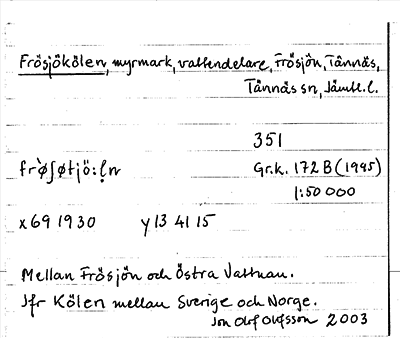 Frösjökölen, myrmark, vattendelare, Frösjön, Tännäs,
Tännäs sn, Jämtl. l.
351
Gr.k. 172 B (1995)
1:50 000
x 69 19 30 y 13 41 15
Mellan Frösjön och Östra Vattnan.
Jfr Kölen mellan Sverige och Norge.
Jon Olof Olofsson 2003